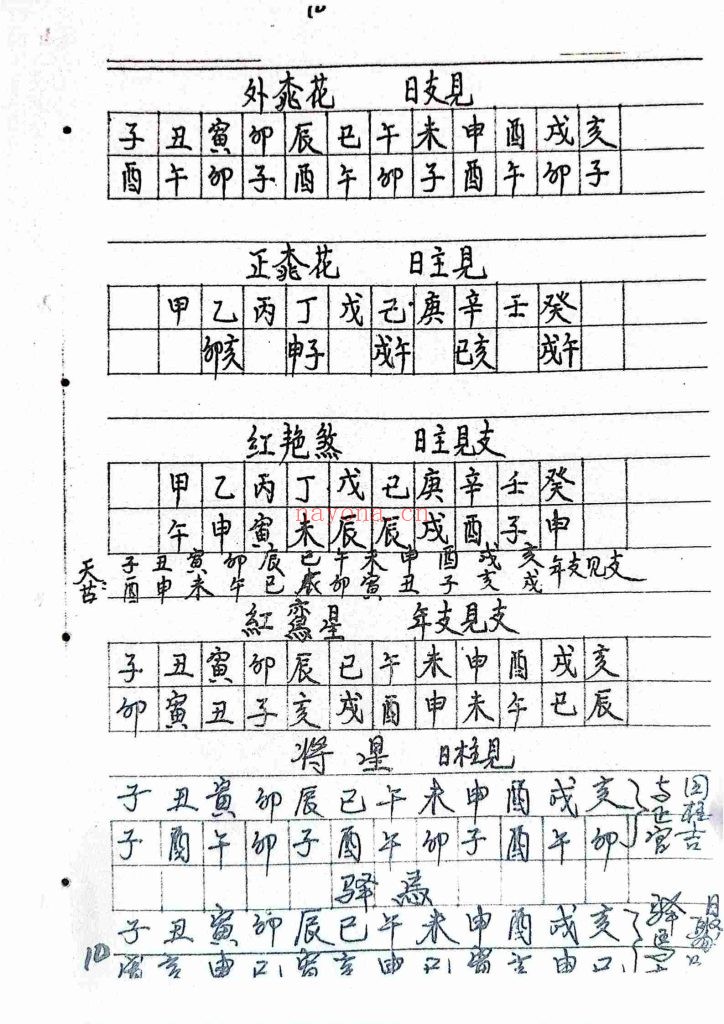 10
外桃花 日支見
子 丑 寅 卯 辰 巳 午 未 申 酉 戌 亥
酉 午 卯 子 酉 午 卯 子 酉 午 卯 子
正桃花 日主見
甲 乙 丙 丁 戊 己 庚 辛 壬 癸
卯亥 申子 戌午 巳亥 戌午
紅艳煞 日主見支
甲 乙 丙 丁 戊 己 庚 辛 壬 癸
午 申 寅 未 辰 辰 戌 酉 子 申
nayona.cn
天喜: 子 丑 寅 卯 辰 巳 午 未 申 酉 戌 亥 年支见支
酉 申 未 午 巳 辰 卯 寅 丑 子 亥 戌
紅鸞星 年支見支
子 丑 寅 卯 辰 巳 午 未 申 酉 戌 亥
卯 寅 丑 子 亥 戌 酉 申 未 午 巳 辰
将星 日柱見
子 丑 寅 卯 辰 巳 午 未 申 酉 戌 亥
子 酉 午 卯 子 酉 午 卯 子 酉 午 卯
驿馬
子 丑 寅 卯 辰 巳 午 未 申 酉 戌 亥
10